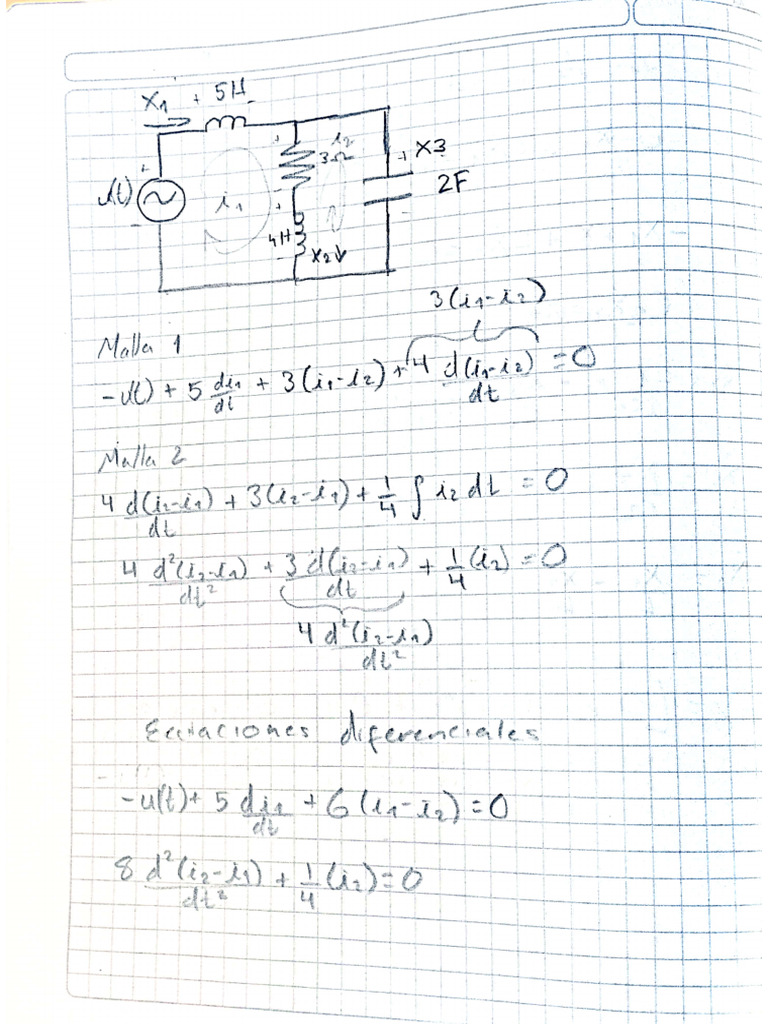 X1 + 5H -
+ i2
3Ω
+ X3
2F
u(t)
+
-
i1
-
+
4H
-
X2↓
-
3(i1-i2)
Malla 1
-u() + 5 di1/dt + 3(i1-i2) + 4 d(i1-i2)/dt = 0
Malla 2
4 d(i2-i1)/dt + 3(i2-i1) + 1/4 ∫ i2 dt = 0
4 d²(i2-i1)/dt² + 3 d(i2-i1)/dt + 1/4 (i2) = 0
4 d²(i2-i1)/dt²
Ecuaciones diferenciales
-u(t) + 5 di1/dt + 6(i1-i2) = 0
8 d²(i2-i1)/dt² + 1/4 (i2) = 0